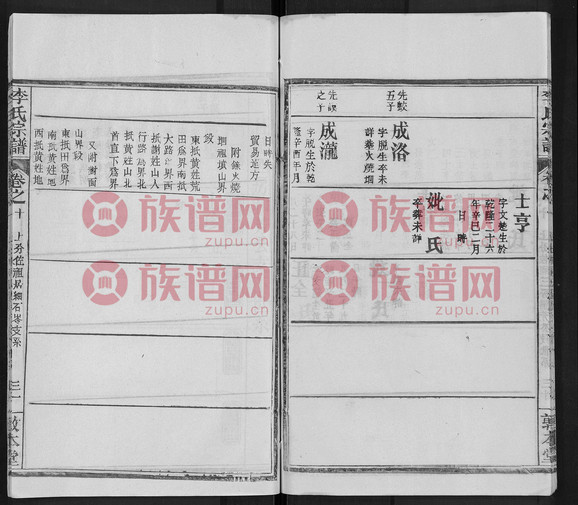 李氏宗譜
士亨
字文楚生於
乾隆二十六
年辛巳二月
日時
妣氏
卒葬未詳
先絞
五子
成洛
字脫生卒未
詳葬火燒烟
先絞
之子
成瀧
字脫生於乾
隆辛酉年月
日時失
貿易地方
附錄火燒
烟瓶墳山界
段
東抵黃姓荒
田爲界南抵
大路爲界西
抵猴姓山人
行路爲界北
抵黃姓山北
首直下爲界
又附對面
山界段
東抵田爲界
南抵黃姓地
西抵黃姓地
李氏宗譜
卷之十
三一
敬本堂
族谱网
zupu.cn
族谱网
zupu.cn
族谱网
zupu.cn
族谱网
zupu.cn